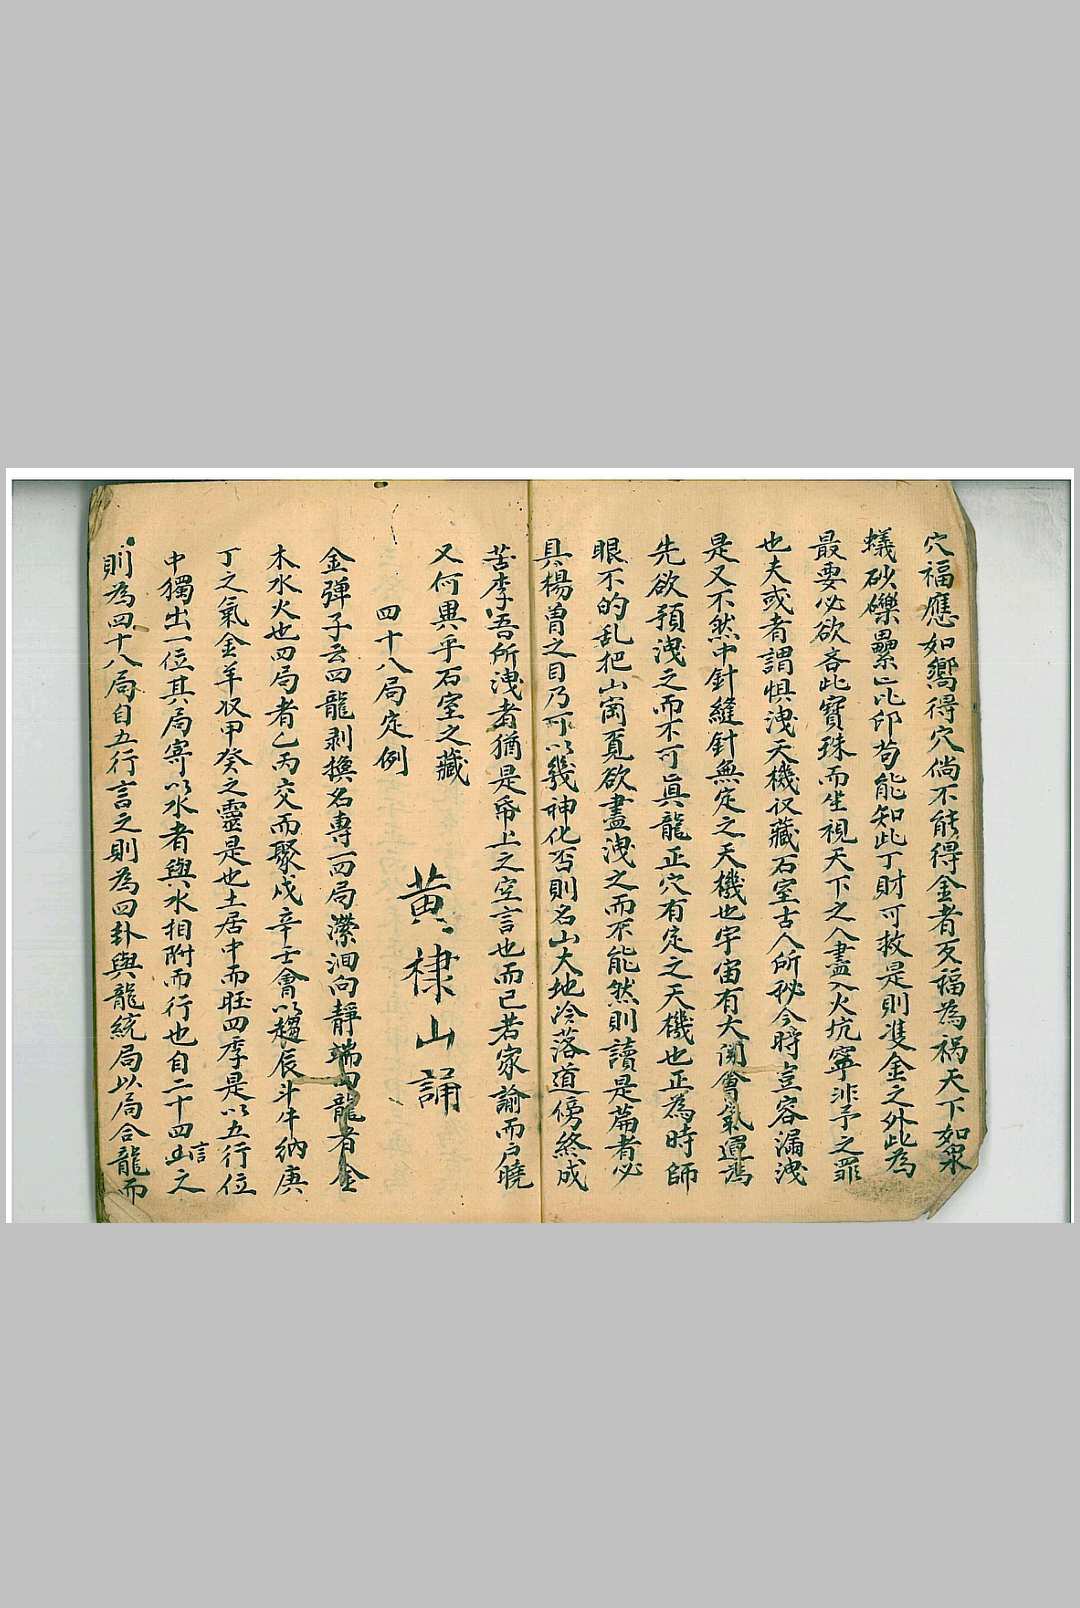 穴福應如嚮得穴倘不能得金者反福為祸天下如衆
蟻砂礫壘壘比卯苟能知此丁財可救是則進金之外此為
最要必欲吝此寳珠而坐視天下之人盡入火坑寧非予之罪
也夫或者謂惧洩天機収藏石室古人所秘今時豈容漏洩
是又不然中針縫針無定之天機也宇宙有大開會氣運為
先欲預洩之而不可眞龍正穴有定之天機也正為時師
眼不的乱把山崗覓欲盡洩之而不能然則讀是篇者必
具楊曾之目乃可以幾神化否則名山大地冷落道傍終成
苦李吾所洩者猶是帋上之空言也而已若家諭而户曉
又何異乎石室之藏
黄棣山誦
四十八局定例
金弹子云四龍剥換名專一四局瀠洄向靜端四龍者金
木水火也四局者乙丙交而聚戌辛壬會以趨辰斗牛納庚
丁之氣金羊収甲癸之靈是也土居中而旺四季是以五行位
中獨出一位其局寄以水者與水相附而行也自二十四山言之
則為四十八局自五行言之則為四卦與龍統局以局合龍而